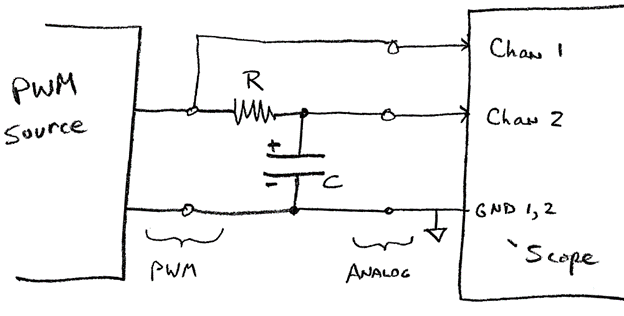 PWM
Source
R
+
-
C
PWM
ANALOG
Chan 1
Chan 2
GND 1, 2
'Scope